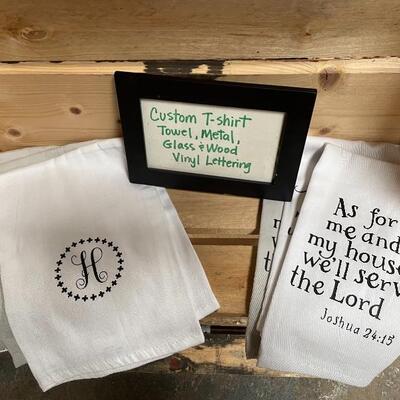 Custom T-shirt
Towel, Metal,
Glass & Wood
Vinyl Lettering
H
As for
me and
my house
we'll serv
the Lord
Joshua 24:15